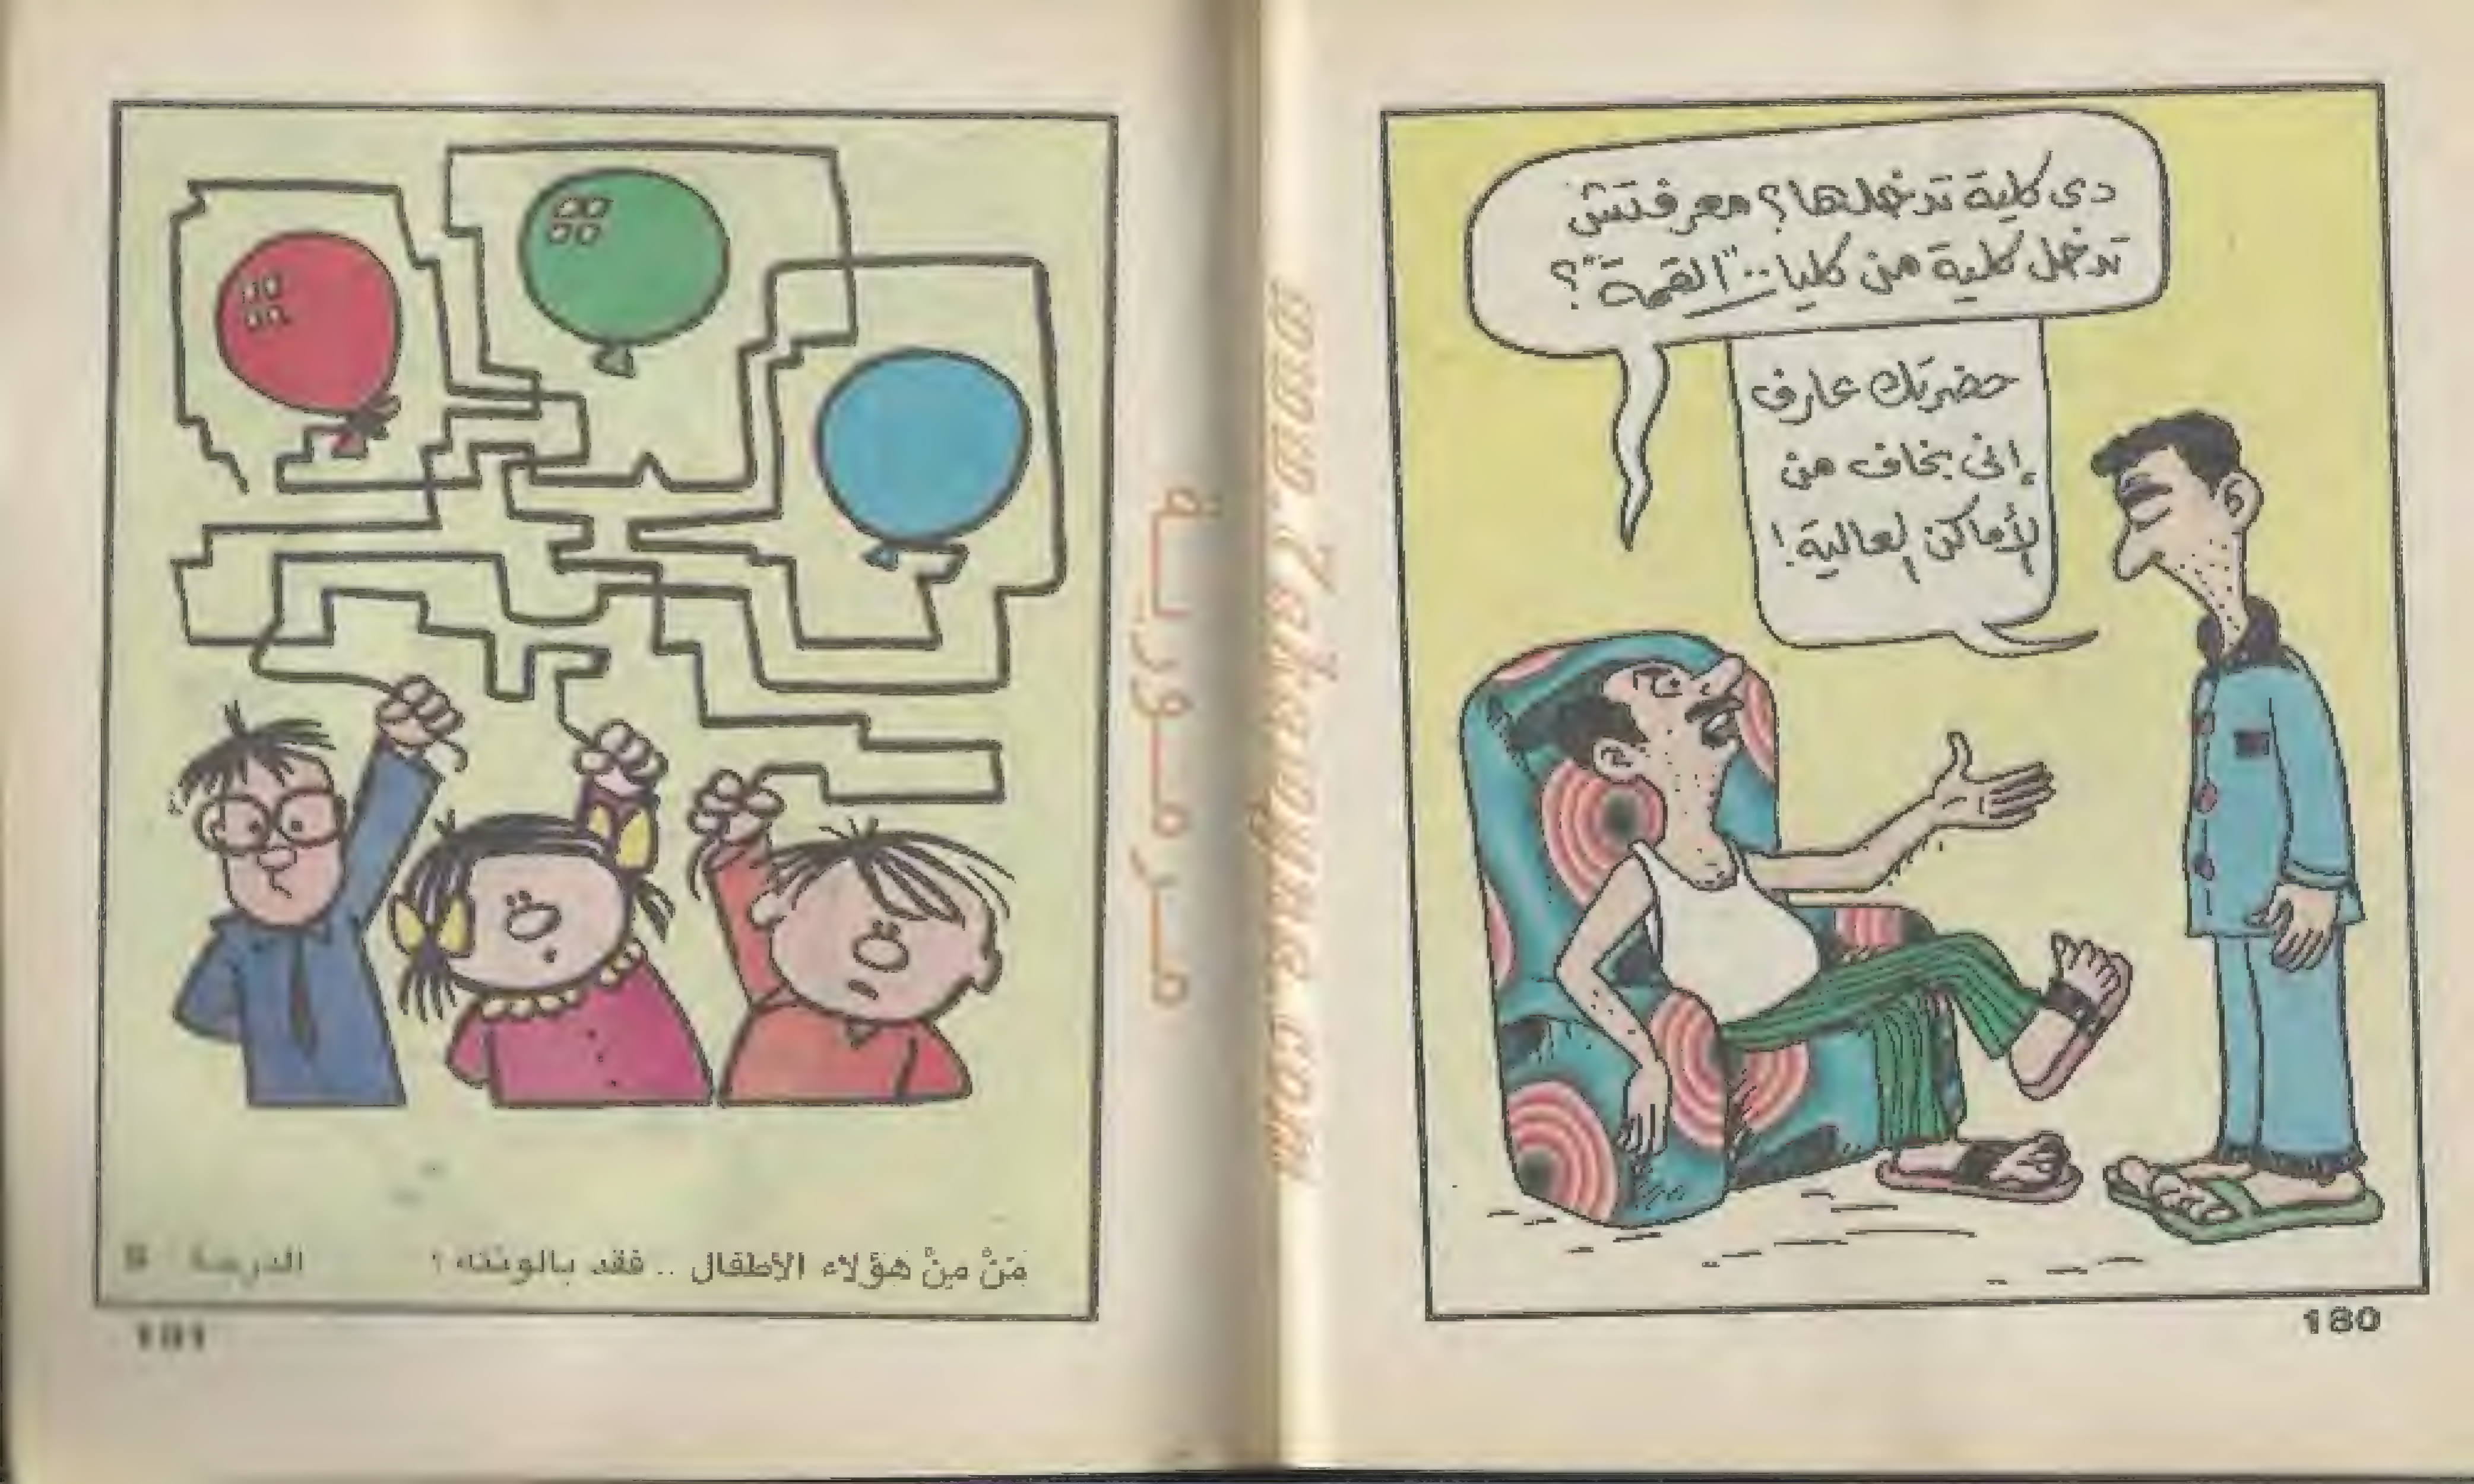 دى كلية تدخلها؟ معرفتش
تدخل كلية من كليات "القمة"؟
حضرتك عارف
إنى بخاف من
الأماكن العالية!
180
www.7akawyna.com
مرمورية
مَنْ مِنْ هؤلاء الأطفال .. فقد بالونته ؟
الدرجة
181